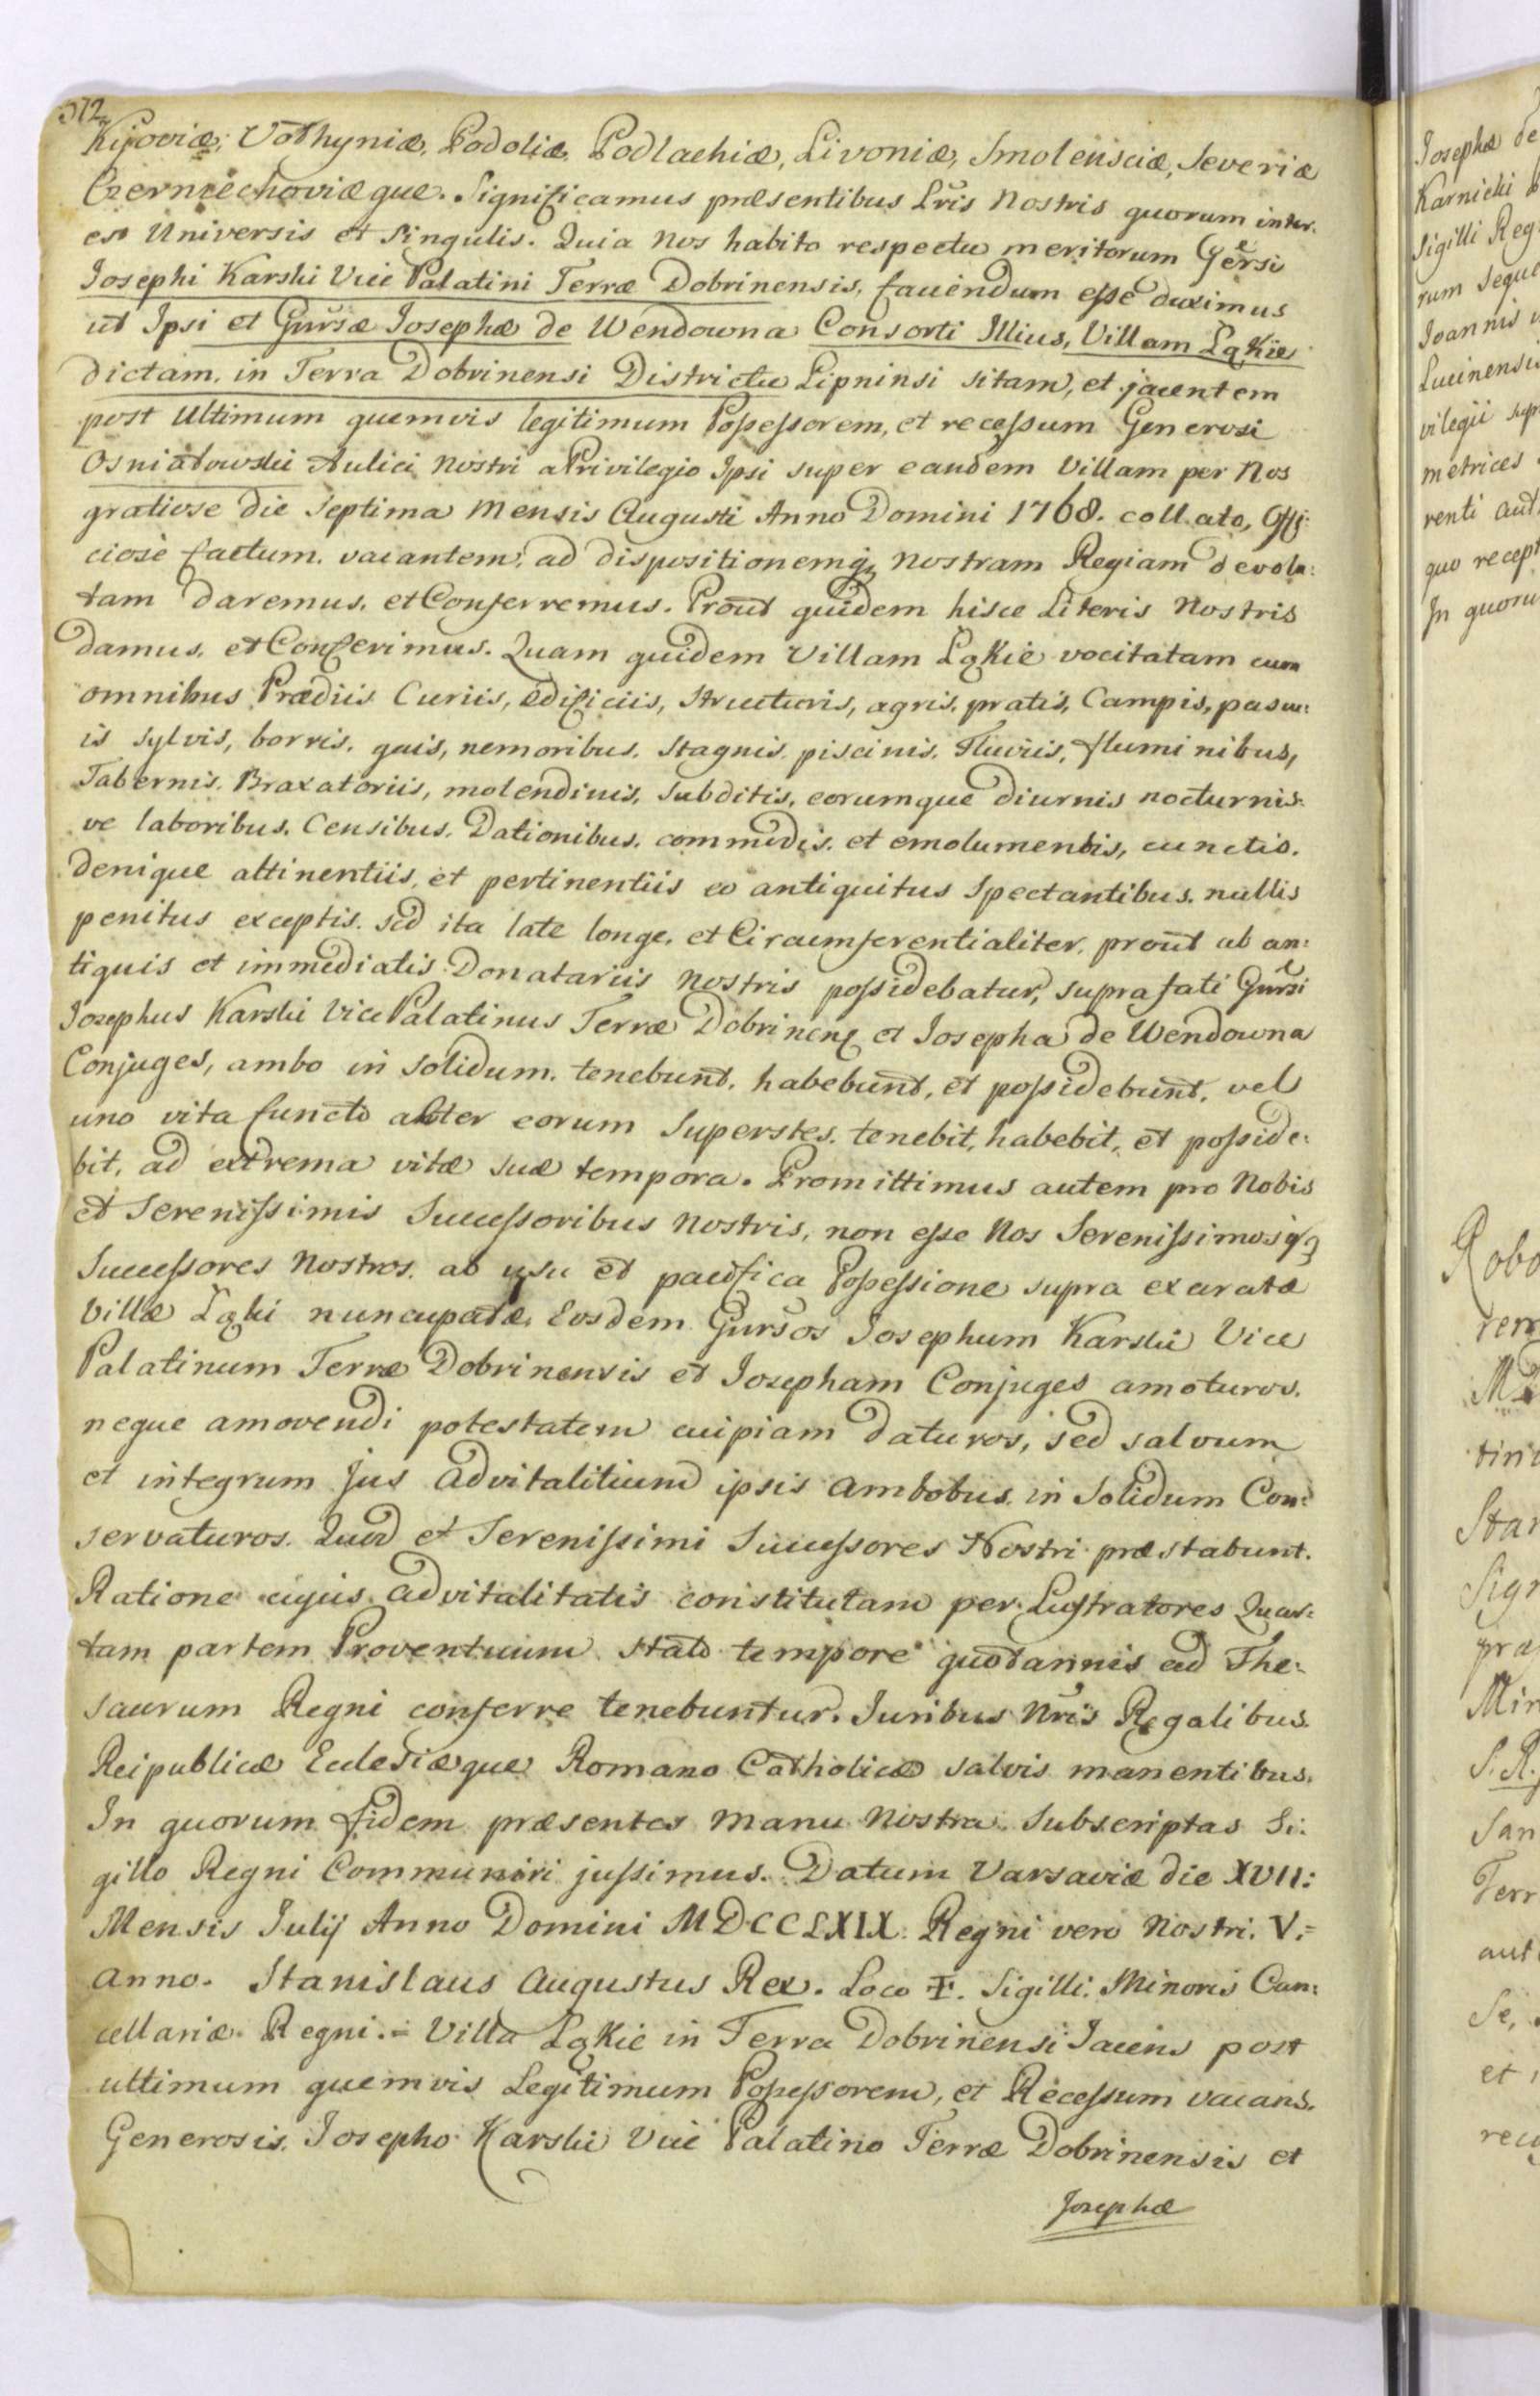 572
Kijoviæ, Volhyniæ, Podoliæ, Podlachiæ, Livoniæ, Smolensciæ, Severiæ
Czerniechoviæque. Significamus præsentibus Lris Nostris quorum inter:
est Universis et Singulis. Quia Nos habito respectu meritorum Gersi
Josephi Karski Vice Palatini Terræ Dobrinensis, favendum esse duximus
ut Ipsi et Gursæ Josephæ de Wendowna Consorti Illius, Villam Łąkie
dictam, in Terra Dobrinensi Districtu Lipninsi sitam, et jacentem
post Ultimum quemvis legitimum Possessorem, et recessum Generosi
Osniałowski Aulici Nostri a Privilegio Ipsi super eandem Villam per Nos
gratiose die Septima Mensis Augusti Anno Domini 1768. collato, Offi:
ciose factum, vacantem, ad dispositionemq, Nostram Regiam devolu:
tam daremus, et Conferremus. Prout quidem hisce Literis Nostris
damus, et Conferimus. Quam quidem Villam Łąkie vocitatam cum
omnibus Prædiis Curiis, ædificiis, structuris, agris, pratis, Campis, pascu:
is sylvis, borris, gais, nemoribus, Stagnis, piscinis, Fluviis, fluminibus,
Tabernis, Braxatoriis, molendinis, Subditis, eorumque diurnis nocturnis:
ve laboribus, Censibus, Dationibus, commodis, et emolumentis, cunctis,
denique attinentiis, et pertinentiis eo antiquitus Spectantibus, nullis
penitus exceptis, sed ita late longe, et Circumferentialiter, prout ab an:
tiquis et immediatis Donatariis Nostris possidebatur, suprafati Gursi
Josephus Karski Vice Palatinus Terræ Dobrinens et Josepha de Wendowna
Conjuges, ambo in solidum, tenebunt, habebunt, et possidebunt, vel
uno vita functo alter eorum Superstes, tenebit, habebit, et posside:
bit, ad extrema vitæ suæ tempora. Promittimus autem pro Nobis
et Serenissimis Successoribus Nostris, non esse Nos Serenissimosqq
Successores Nostros, ab usu et pacifica Possessione supra exaratæ
Villæ Łąki nuncupatæ, Eosdem Gursos Josephum Karski Vice
Palatinum Terræ Dobrinensis et Josepham Conjuges amoturos,
neque amovendi potestatem cuipiam daturos, sed salvum
et integrum Jus advitalitium ipsis ambobus in Solidum Con:
servaturos. Quod et Serenissimi Successores Nostri præstabunt.
Ratione cujus advitalitatis constitutam per Lustratores Quar:
tam partem Proventuum stato tempore quotannis ad The:
saurum Regni conferre tenebuntur. Juribus Nris Regalibus
Reipublicæ Eclesiæque Romano Catholicæ salvis manentibus.
In quorum fidem præsentes manu Nostra Subscriptas Si:
gillo Regni Communiri jussimus. Datum Varsaviæ die XVII:
Mensis Julij Anno Domini MDCCLXIX. Regni vero Nostri. V:
anno. Stanislaus Augustus Rex. Loco ✝. Sigilli. Minoris Can:
cellariæ Regni.= Villa Łąkie in Terra Dobrinensi Jacens post
ultimum quemvis Legitimum Possessorem, et Recessum vacans,
Generosis, Josepho Karski Vice Palatino Terræ Dobrinensis et
Josephæ
Josephæ de
Karnicki
Sigilli Reg
rum seque
Joannis
Lucinensis
vilegii sup
metrices
renti aut
quo recept
In quoru
Robo
Star
Sign
pra
Min
S. R.
San
Terr
aut
Se,
et